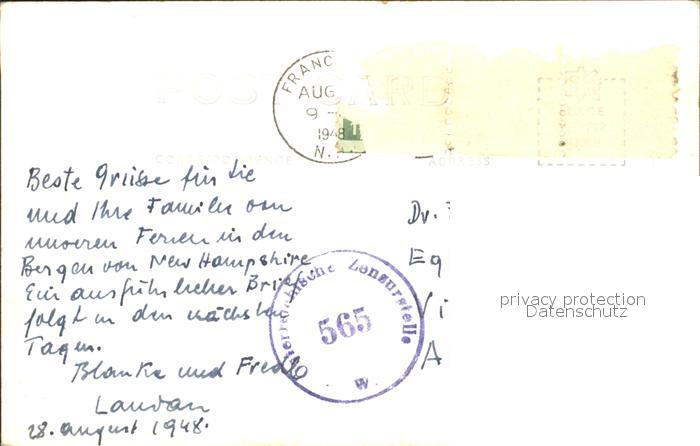 POST CARD
FRANC
AUG
9 -
1948
N.
CORRESPONDENCE
ADDRESS
PLACE
Beste Grüsse für Sie
und Ihre Familie von
unseren Ferien in den
Bergen von New Hampshire
Ein ausführlicher Brief
folgt in den nächsten
Tagen.
Blanka und Fredl
Landau
28. august 1948.
Dr.
Eg
Vi
A
Österreichische Zensurstelle
565
W
privacy protection
Datenschutz